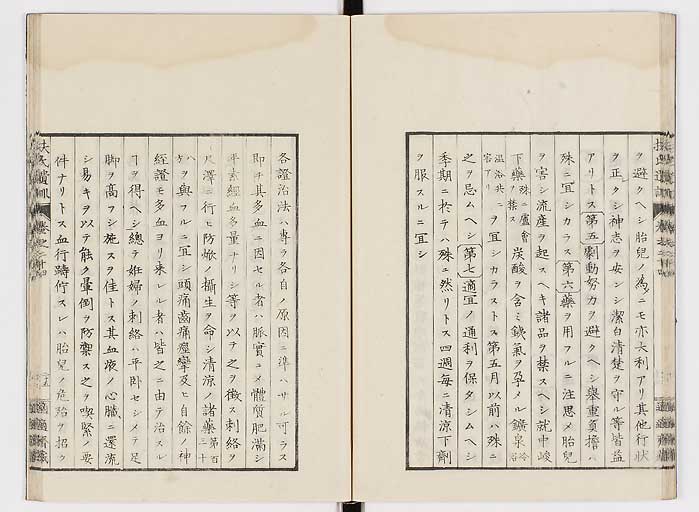 ヲ避クヘシ胎兒ノ為ニモ亦大利アリ其他行狀
ヲ正クシ神志ヲ安ンシ潔白清楚ヲ守ル等皆益
アリトス第五劇動努力ヲ避クヘシ舉重負擔ハ
殊ニ宜シカラス第六藥ヲ用フルニ注思メ胎兒
ヲ害シ流産ヲ起スヘキ諸品ヲ禁スヘシ就中峻
下藥殊ニ盧會ヲ禁ス炭酸ヲ含ミ鐵氣ヲ孕メル鑛泉冷浴
温浴共ニ害アリヲ宜シカラストス第五月以前ハ殊ニ
之ヲ忌ムヘシ第七適宜ノ通利ヲ保タシムヘシ
季期ニ於テハ殊ニ然リトス四週毎ニ清涼下劑
ヲ服スルニ宜シ
各證治法ハ專ラ各自ノ原因ニ準ハサル可ラス
即チ其多血ニ因セル者ハ脈實ニメ體質肥滿シ
平素經血多量ナリシ等ヲ以テ之ヲ徴ス刺絡ヲ
尺澤ニ行モ防歇ノ攝生ヲ命シ清涼ノ諸藥第百三十
ハヲ與フルニ宜シ頭痛齒痛痙攣及ヒ自餘ノ神
經證モ多血ヨリ來レル者ハ皆之ニ由テ治スル
ヿヲ得ヘシ總テ姙婦ノ刺絡ハ平臥セシメテ足
脚ヲ高フシ施スヲ佳トス其血液ノ心臟ニ還流
シ易キヲ以テ能ク暈倒ヲ防禦ス之ヲ喫緊ノ要
件ナリトス血行躊佇スレハ胎兒ノ危殆ヲ招ク
扶氏遺訓 卷之二十四